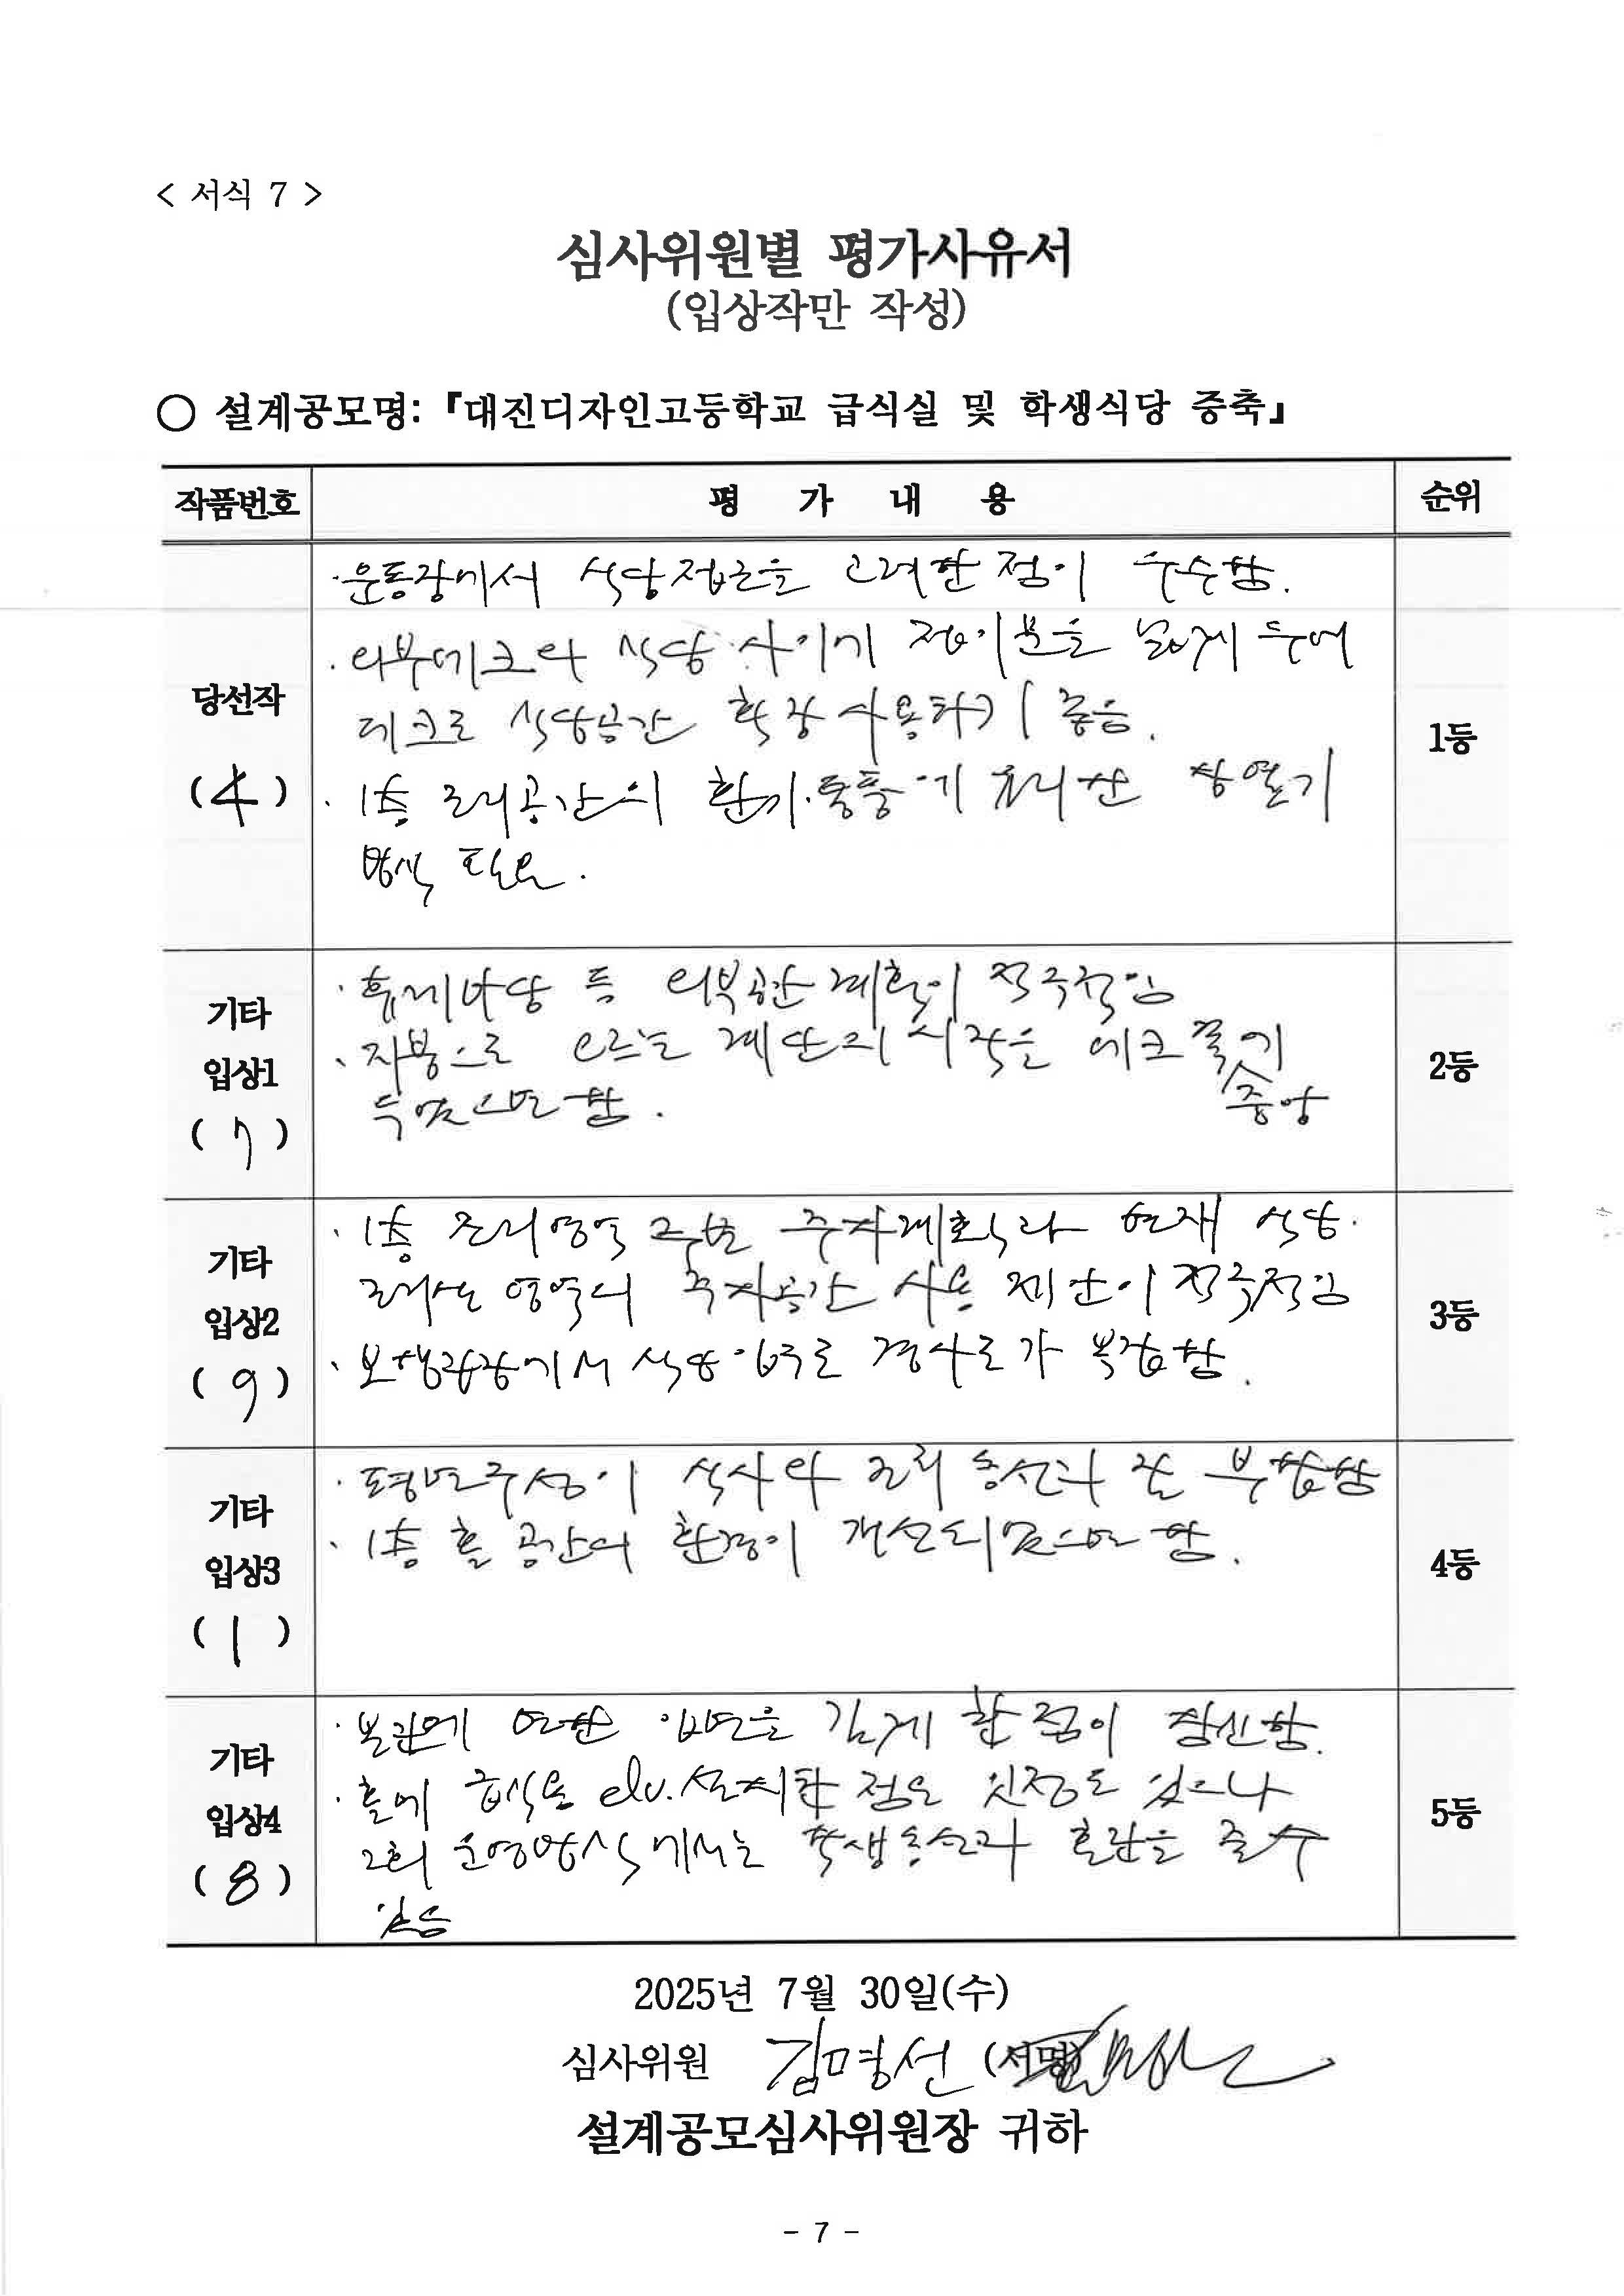 < 서식 7 >
심사위원별 평가사유서
(입상작만 작성)
○ 설계공모명: 『대진디자인고등학교 급식실 및 학생식당 증축』
작품번호 평 가 내 용 순위
당선작
(4)
· 운동장에서 식당접근을 고려한 점이 우수함.
· 외부데크와 식당 사이에 접이문을 넓게 두어
데크로 식당공간 확장 사용하기 좋음.
· 1층 조리공간의 환기·통풍에 유리한 창 열기
방식 필요.
1등
기타
입상1
(7)
· 휴게마당 등 외부공간 계획이 적극적임
· 지붕으로 오르는 계단의 시작을 데크 쪽에
중앙
두었으면 함.
2등
기타
입상2
(9)
· 1층 조리영역 구분 주차계획과 현재 식당·
조리실 영역의 주차공간 사용 제안이 적극적임
· 보행광장에서 식당 입구로 경사로가 복잡함.
3등
기타
입상3
(1)
· 평면구성이 식사와 조리 동선과 잘 부합함
· 1층 홀 공간의 환경이 개선되었으면 함.
4등
기타
입상4
(8)
· 본관에 면한 입면을 길게 한 점이 참신함.
· 홀에 급식용 elv. 설치한 점은 장점도 있으나
2회 운영방식에서는 학생동선과 혼란을 줄 수
있음
5등
2025년 7월 30일(수)
심사위원 김명선 (서명)
설계공모심사위원장 귀하
- 7 -